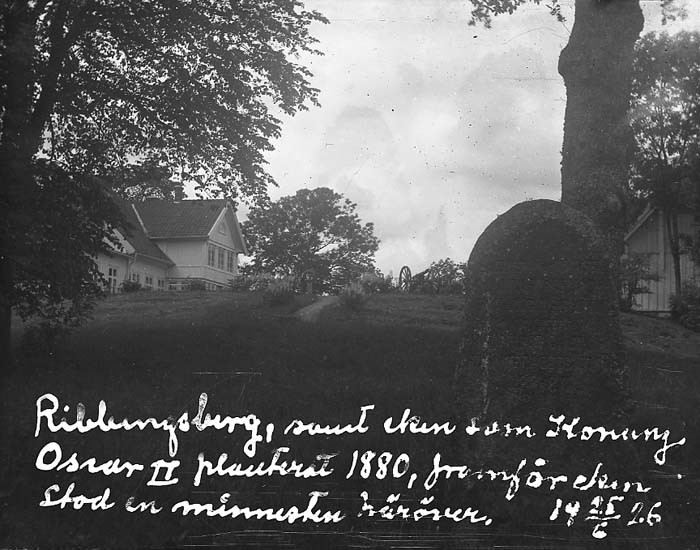 Ribbungsberg, samt eken som Konung
Oscar II planterat 1880, framför eken
stod en minnesten häröver. 19 25/6 26